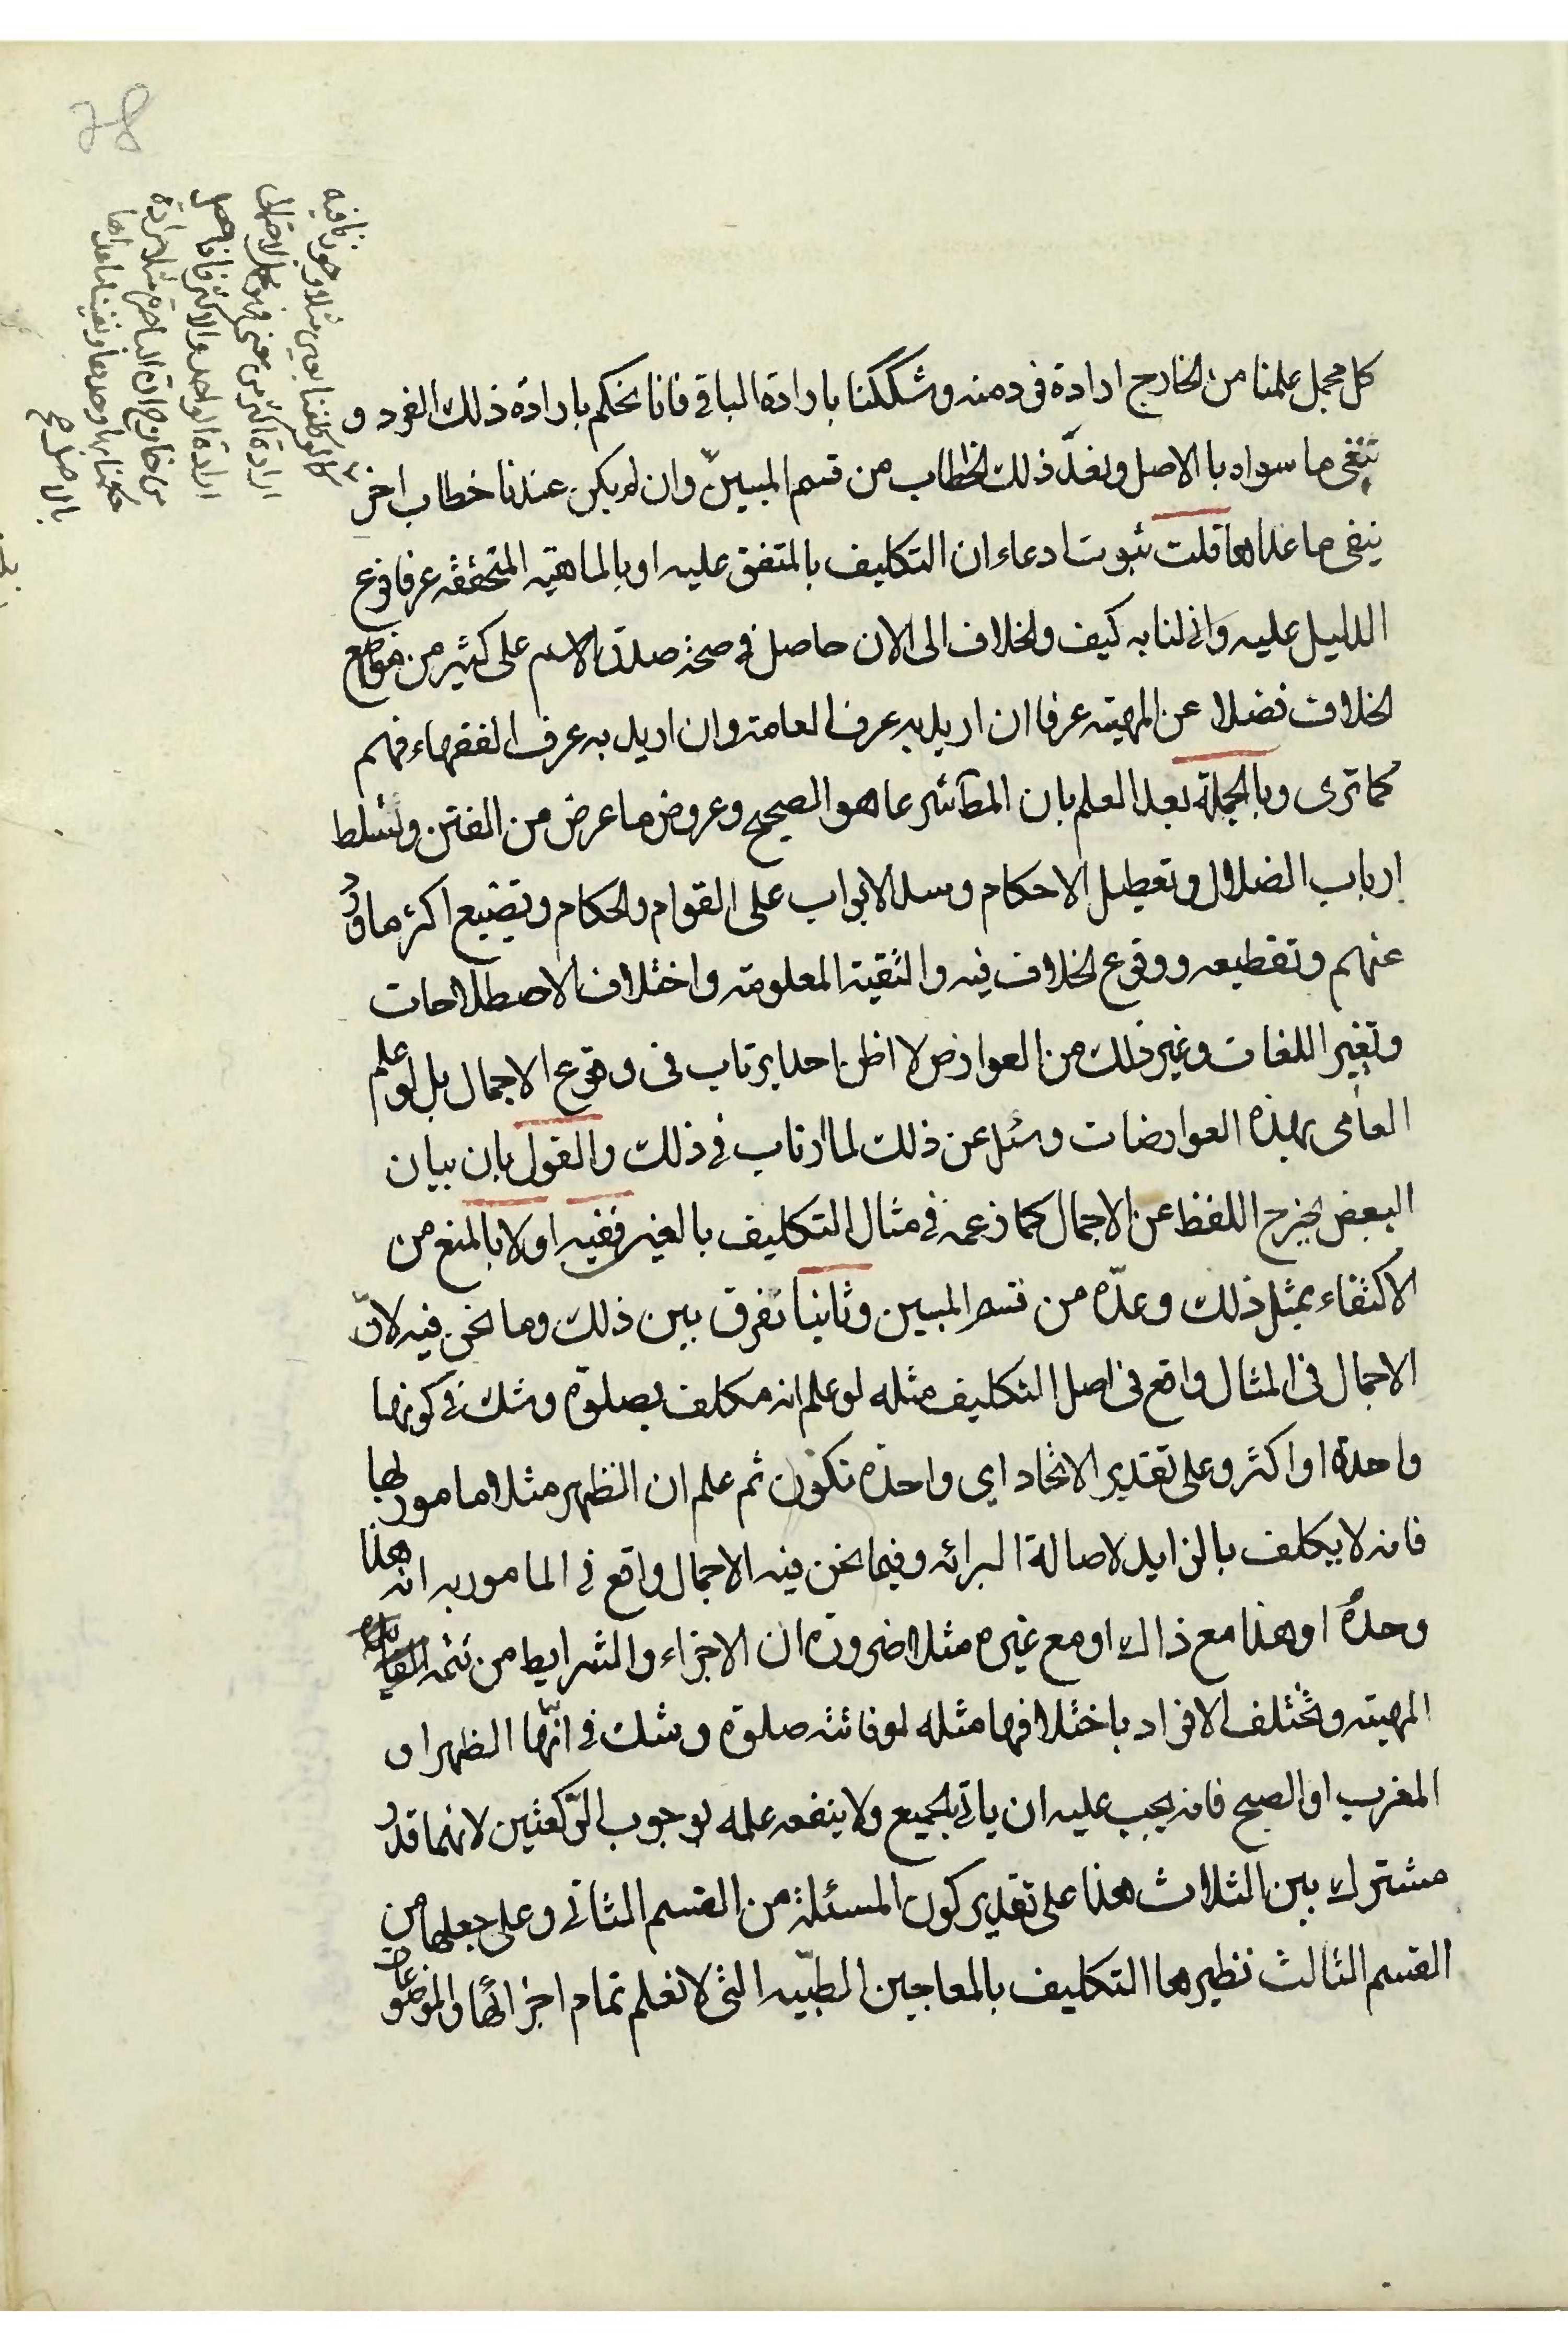 كل مجمل علمنا من الخارج ارادة فردمنه وشككنا بارادة الباقي فانا نحكم بارادة ذلك الفرد و
ننفى ما سواه بالاصل ونعدّ ذلك الخطاب من قسم المبينّ وان لم يكن عندنا خطاب اخر
ينفى ما عداها قلت ثبوت ادعاء ان التكليف بالمتفق عليه او بالماهيته المتحققه عرفا فرع
الدليل عليه وانى لنا به كيف والخلاف الى الان حاصل في صحة صدق الاسم على كثير من مواضع
الخلاف فضلا عن المهيته عرفا ان اريد به عرف العامة وان اريد به عرف الفقهاء فهم
كما ترى وبالجملة بعد العلم بان المكلّف شرعا هو الصحيح وعروض ما عرض من الفتن وتسلط
ارباب الضلال وتعطيل الاحكام وسد الابواب على القوام والحكام وتضييع اكثر ما ورد
عنهم وتقطيعه ووقوع الخلاف فيه والتقية المعلومة واختلاف الاصطلاحات
وتغير اللغات وغير ذلك من العوارض لا اظن احدا يرتاب فى وقوع الاجمال بل لو علم
العامى بهذه العوارضات وسئل عن ذلك لما ارتاب في ذلك والقول بان بيان
البعض يخرج اللفظ عن الاجمال كما زعمه في مثال التكليف بالغير ففيه اولا بالمنع من
الاكتفاء بمثل ذلك وعدّه من قسم المبين وثانيا نفرق بين ذلك وما نحن فيه لانّ
الاجمال فى المثال واقع فى اصل التكليف مثله لو علم انه مكلف بصلوة وشك في كونها
واحدة او اكثر وعلى تقدير الاتحاد اى واحدة تكون ثم علم ان الظهر مثلا مامور بها
فانه لا يكلف بالزايد لاصالة البرائه وفيما نحن فيه الاجمال واقع في المامور به انه هذا
وحده او هذا مع ذاك او مع غيره مثلا ضرورة ان الاجزاء والشرايط من تتمه
المهيته وتختلف الافراد باختلافها مثله لو فاتته صلوة وشك في انّها الظهر او
المغرب او الصبح فانه يجب عليه ان ياتى بالجميع ولا ينفعه علمه بوجوب الرّكعتين لانهما قدر
مشترك بين الثلاث هذا على تقدير كون المسئلة من القسم الثانى وعلى جعلها من
القسم الثالث نظيرها التكليف بالمعاجين الطبّيه التى لا نعلم تمام اجزائها والموضوعات
كما لو كلفنا بعين مثلا وجوزنا فيه
ارادة اكثر من معنى
ارادة الواحد والاكثر
حكمنا بها وحدها ونفينا ما عداها
بالاصل صح
78